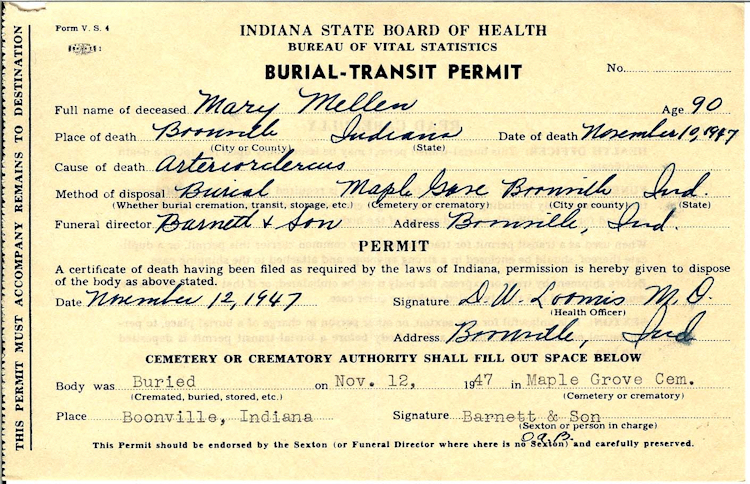 Form V. S. 4
INDIANA STATE BOARD OF HEALTH
BUREAU OF VITAL STATISTICS
BURIAL-TRANSIT PERMIT
No.
Full name of deceased Mary Mellen Age 90
Place of death Boonville Indiana Date of death November 10, 1947
(City or County) (State)
Cause of death
Method of disposal Burial Maple Grove Boonville Ind.
(Whether burial cremation, transit, storage, etc.) (Cemetery or crematory) (City or county) (State)
Funeral director Barnett & Son Address Boonville, Ind.
PERMIT
A certificate of death having been filed as required by the laws of Indiana, permission is hereby given to dispose
of the body as above stated.
Date November 12, 1947 Signature D. W. Loomis M.D.
(Health Officer)
Address Boonville, Ind
CEMETERY OR CREMATORY AUTHORITY SHALL FILL OUT SPACE BELOW
Body was Buried on Nov. 12, 1947 in Maple Grove Cem.
(Cremated, buried, stored, etc.) (Cemetery or crematory)
Place Boonville, Indiana Signature Barnett & Son
(Sexton or person in charge)
This Permit should be endorsed by the Sexton (or Funeral Director where there is no Sexton) and carefully preserved.
THIS PERMIT MUST ACCOMPANY REMAINS TO DESTINATION